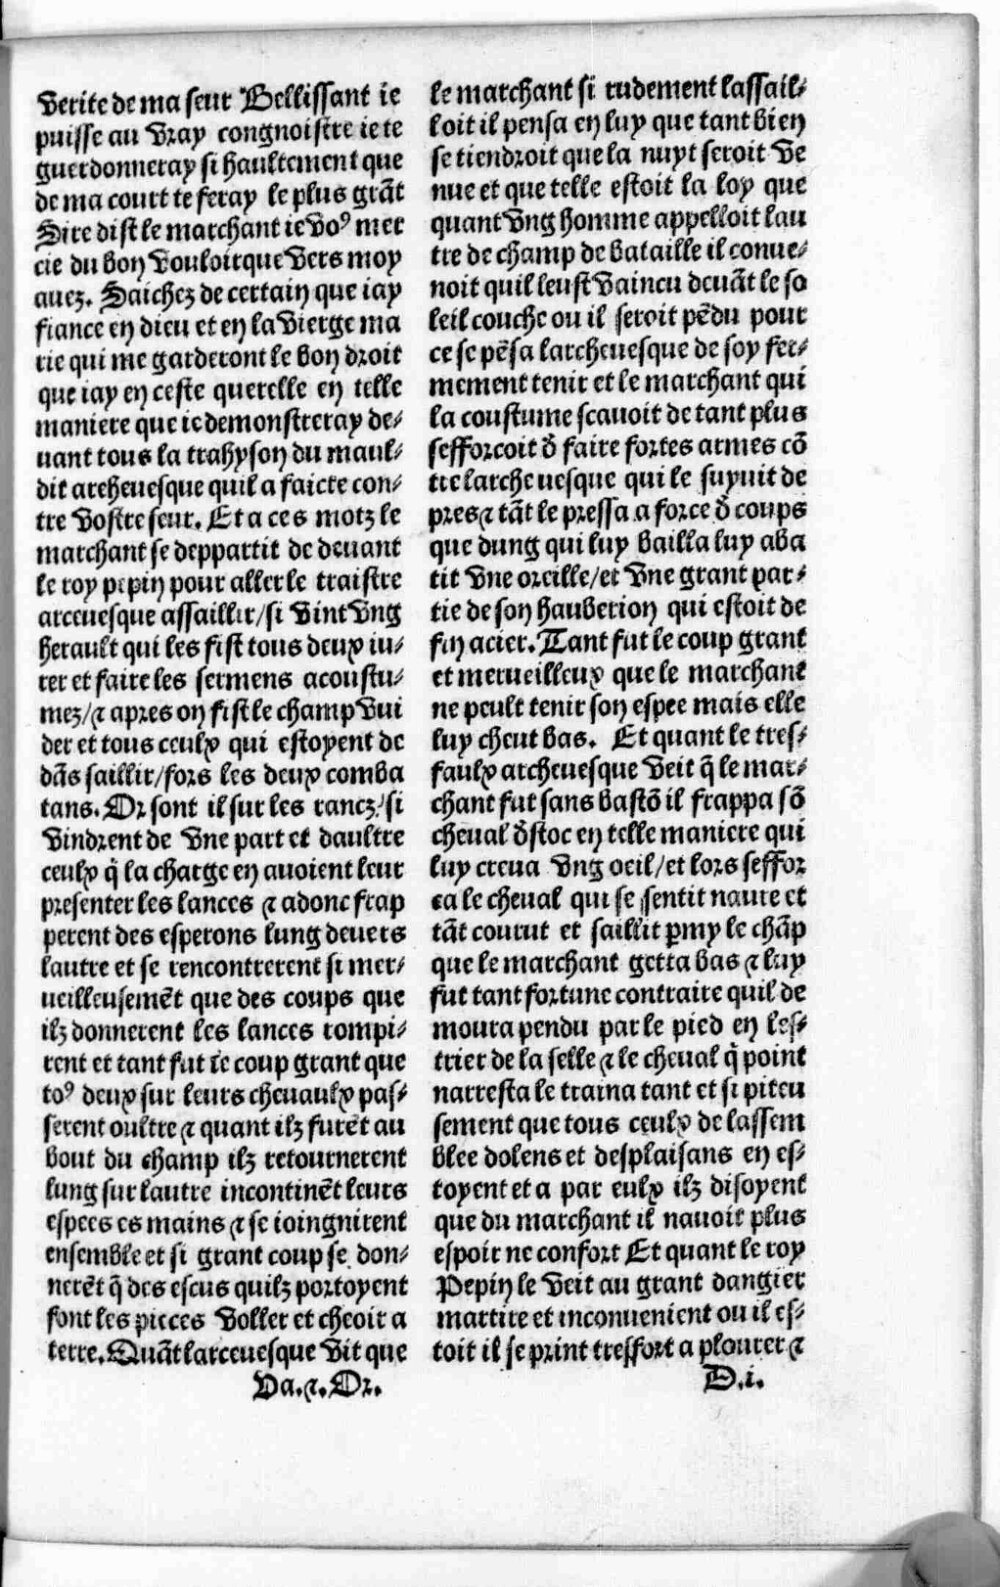 Verite de ma seur Bellissant ie
puisse au vray congnoistre ie te
guerdonneray si haultement que
de ma court te feray le plus grãt
Sire dist le marchant ie voꝰ mer
cie du bon vouloir que vers moy
auez. Saichez de certain que iay
fiance en dieu et en la vierge ma
rie qui me garderont le bon droit
que iay en ceste querelle en telle
maniere que ie demonstreray de⸗
uant tous la trahyson du maul⸗
dit archeuesque quil a faicte con⸗
tre vostre seur. Et a ces motz le
marchant se deppartit de deuant
le roy pepin pour aller le traistre
arceuesque assaillir/si vint vng
herault qui les fist tous deux iu⸗
rer et faire les sermens acoustu⸗
mez/⁊ apres on fist le champ vui
der et tous ceulx qui estoyent de
dãs saillir/fors les deux comba
tans. Or sont il sur les rancz/si
vindrent de vne part et daultre
ceulx q̃ la charge en auoient leur
presenter les lances ⁊ adonc frap
perent des esperons lung deuers
lautre et se rencontrerent si mer⸗
ueilleusemẽt que des coups que
ilz donnerent les lances rompi⸗
rent et tant fut le coup grant que
toꝰ deux sur leurs cheuaulx pas⸗
serent oultre ⁊ quant ilz furẽt au
bout du champ ilz retournerent
lung sur lautre incontinẽt leurs
espees es mains ⁊ se ioingnirent
ensemble et si grant coup se don⸗
nerẽt q̃ des escus quilz portoyent
font les pieces voller et cheoir a
terre. Quãt larceuesque vit que
Va.⁊.Or.
le marchant si rudement lassail⸗
loit il pensa en luy que tant bien
se tiendroit que la nuyt seroit ve
nue et que telle estoit la loy que
quant vng homme appelloit lau
tre de champ de bataille il conue⸗
noit quil leust vaincu deuãt le so
leil couche ou il seroit pẽdu pour
ce se pẽsa larcheuesque de soy fer⸗
mement tenir et le marchant qui
la coustume scauoit de tant plus
sefforcoit d̕ faire fortes armes cõ
tre larche uesque qui le suyuit de
pres⁊ tãt le pressa a force d̕ coups
que dung qui luy bailla luy aba
tit vne oreille/et vne grant par⸗
tie de son hauberion qui estoit de
fin acier. Tant fut le coup grant
et merueilleux que le marchant
ne peult tenir son espee mais elle
luy cheut bas. Et quant le tres⸗
faulx archeuesque veit q̃ le mar⸗
chant fut sans bastõ il frappa sõ
cheual d̕stoc en telle maniere qui
luy creua vng oeil/et lors seffor
ca le cheual qui se sentit naure et
tãt courut et saillit ꝑmy le chãp
que le marchant getta bas ⁊ luy
fut tant fortune contraire quil de
moura pendu par le pied en les⸗
trier de la selle ⁊ le cheual q̃ point
narresta le traina tant et si piteu
sement que tous ceulx de lassem
blee dolens et desplaisans en es⸗
toyent et a par eulx ilz disoyent
que du marchant il nauoit plus
espoir ne confort Et quant le roy
Pepin le veit au grant dangier
martire et inconuenient ou il es⸗
toit il se print tresfort a plourer ⁊
D.i.